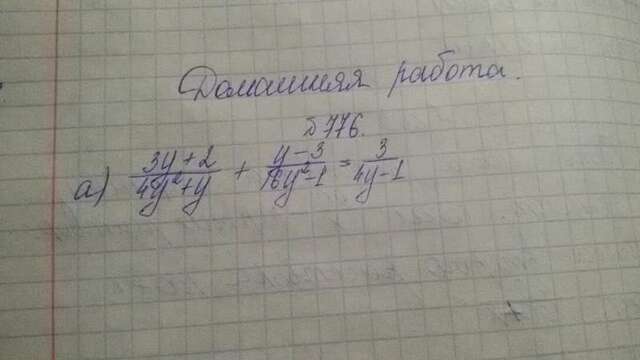 Домашняя работа.
№776.
а) (3y+2)/(4y²+y) + (y-3)/(16y²-1) = 3/(4y-1)